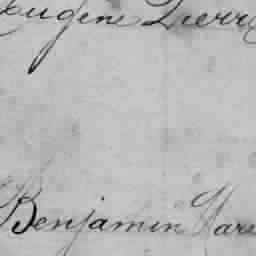 Eugène Pierr
Benjamin Nar